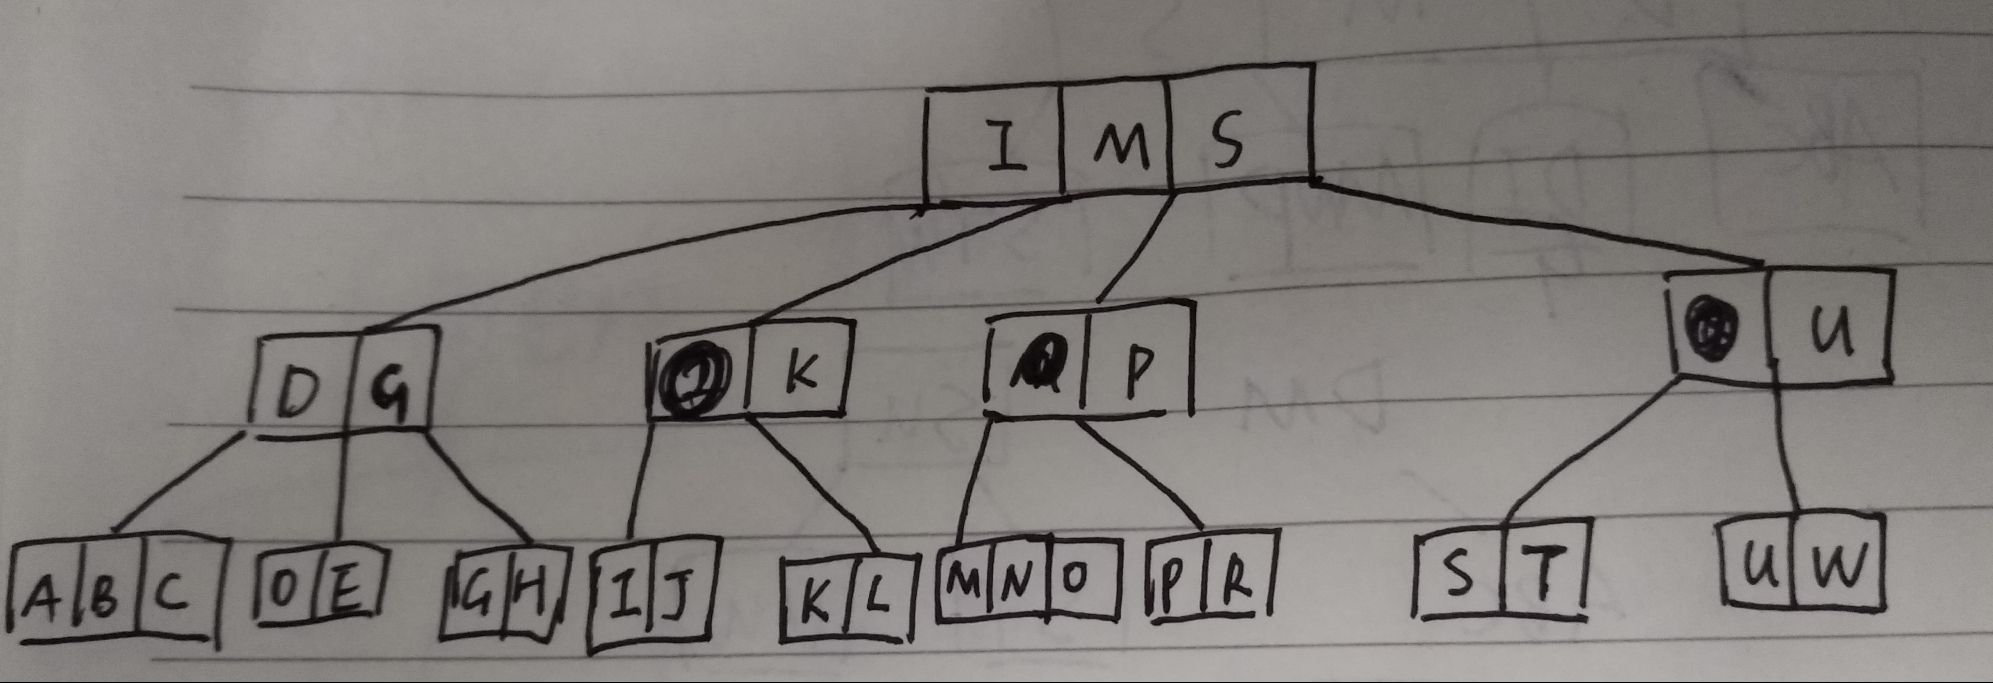 I M S
D G
K
P
U
A B C
D E
G H
I J
K L
M N O
P R
S T
U W